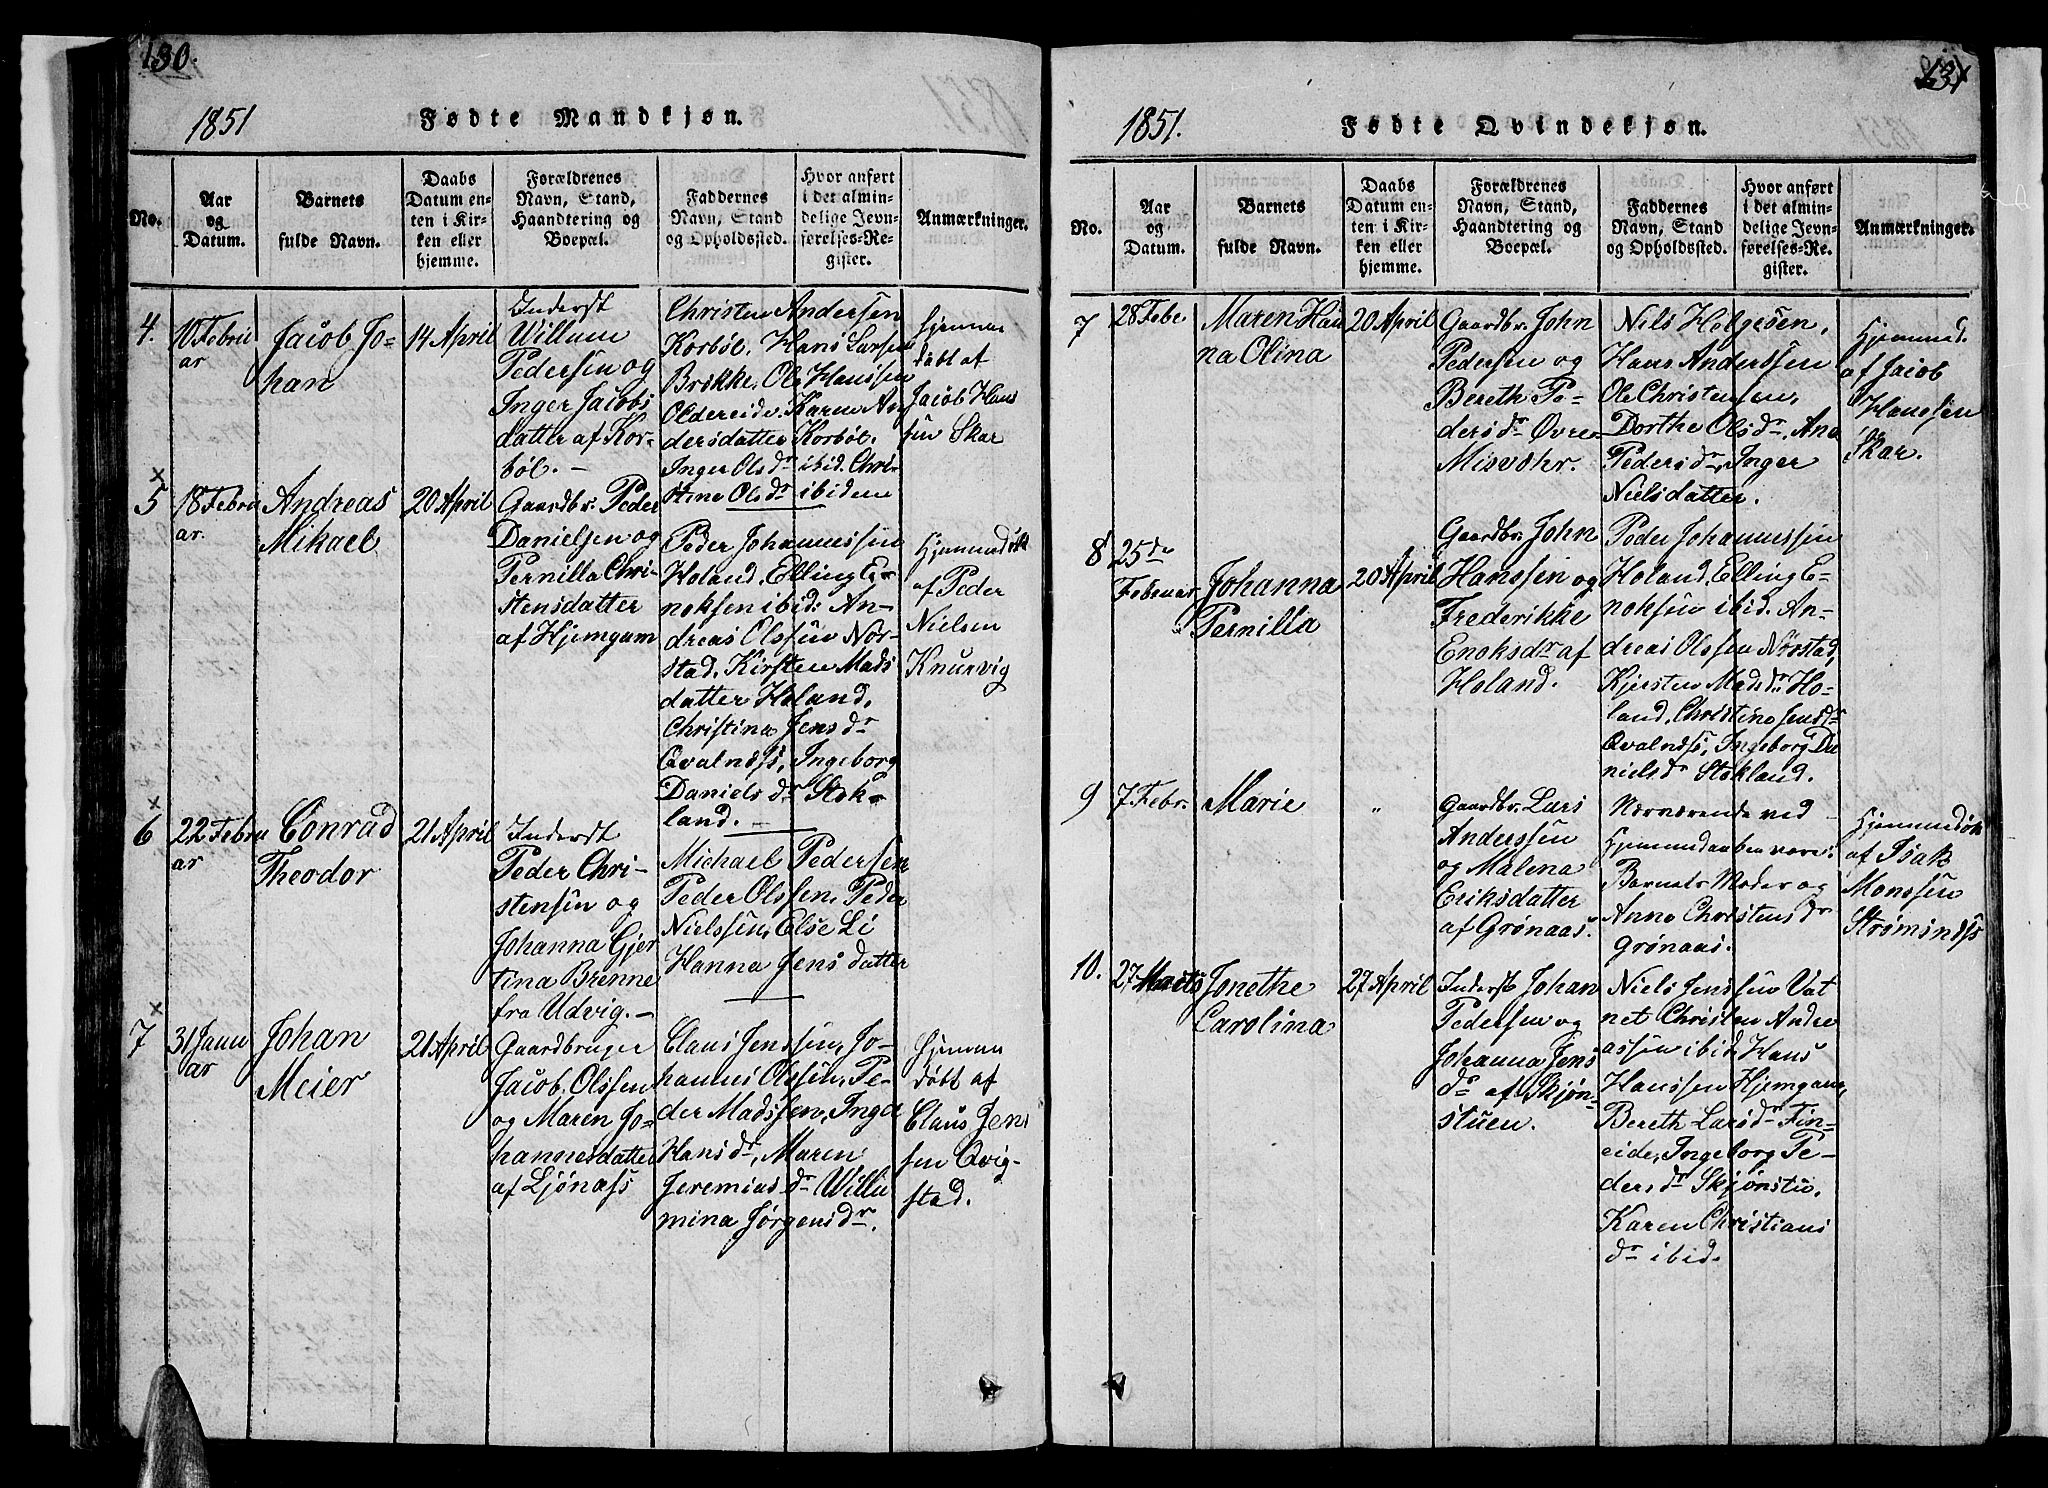 130.
1851
Fødte Mandkjøn.
No.
Aar
og
Datum.
Barnets
fulde Navn.
Daabs
Datum en-
ten i Kir-
ken eller
hjemme.
Forældrenes
Navn, Stand,
Haandtering og
Boepæl.
Faddernes
Navn, Stand
og Opholdssted.
Hvor anført
i det almin-
delige Jevn-
førelses-Re-
gister.
Anmærkninger.
4.
10 Febru
ar
Jacob Jo-
han
14 April
Inderst
Willum
Pedersen og
Inger Jacobs
datter af Kor-
bøl. -
Christen Andersen
Korbøl. Hans Larsen
Brekke, Ole Hanssen
Oldereide. Karen An
dersdatter Korbøl.
Inger Olsdr ibid. Chri-
stine Olsdr ibidem
hjemme
døbt af
Jacob Hans
sen Skar
×
5
18 Febru
ar.
Andreas
Mikael
20 April
Gaardbr. Peder
Danielsen og
Pernilla Chri-
stensdatter
af Hjemgam
Peder Johannessen
Holand, Elling E-
noksen ibid: An-
dreas Olssen Nør-
stad, Kirsten Mads
datter Holand,
Christina Jensdr
Qvalnæss, Ingeborg
Danielsdr Stok-
land. -
Hjemmedøbt
af Peder
Nielsen
Knurvig
×
6
22 Febru
ar
Conrad
Theodor
21 April
Inderst
Peder Chri-
stensen og
Johanna Gjer
tina Brenne
fra Udvig. -
Michael Pedersen
Peder Olssen, Peder
Nielssen, Else Li
Hanna Jensdatter
×
7
31 Janu
ar
Johan
Meier
21 April
Gaardbruger
Jacob Olssen
og Maren Jo-
hannesdatter
af Ljønæss
Claus Jenssen, Jo-
hannes Olssen, Pe-
der Madssen, Inger
Hansdr, Maren
Jeremiasdr Willu
mina Jørgensdr.
hjemme
døbt af
Claus Jens
sen Qvig-
stad.
131
1851.
Fødte Qvindekjøn.
No.
Aar
og
Datum.
Barnets
fulde Navn.
Daabs
Datum en-
ten i Kir-
ken eller
hjemme.
Forældrenes
Navn, Stand,
Haandtering og
Boepæl.
Faddernes
Navn, Stand
og Opholdssted.
Hvor anført
i det almin-
delige Jevn-
førelses-Re-
gister.
Anmærkninger.
7
28 Febr
Maren Han
na Olina
20 April
Gaardbr. John
Pedersen og
Bereth Pe-
dersdr Øvre
Misvæhr.
Nils Holgesen,
Hans Anderssen
Ole Christensen,
Dorthe Olsdr, Ana
Pedersdr, Inger
Nielsdatter.
Hjemmed.
af Jacob
Hanssen
Skar.
8
25de
Februar
Johanna
Pernilla
20 April
Gaardbr. John
Hanssen og
Frederikke
Enoksdr af
Holand.
Peder Johannessen
Holand, Elling E-
noksen ibid. An-
dreas Olssen Nørstad,
Kjersten Madsdr Ho-
land, Christine Jensdr
Qvalnæss, Ingeborg Da
nielsdr Stokland.
9
7 Febr.
Marie
"
Gaardbr. Lars
Anderssen
og Malena
Eriksdatter
af Grønaas.
Nærværende ved
Hjemmedaaben vare:
Barnets Moder og
Anne Christensdr
Grønaas.
Hjemmedøbt
af Isak
Monssen
Strømsnæss
10.
27 Marts
Jonethe
Carolina
27 April
Inderst Johan
Pedersen og
Johanna Jens
dr af Skjøn-
stuen.
Niels Jenssen Vat
net Christen Andre
assen ibid, Hans
Hanssen Hjemgam,
Bereth Larsdr Fin-
eide, Ingeborg Pe-
dersdr Skjønstu,
Karen Christians
dr ibid.